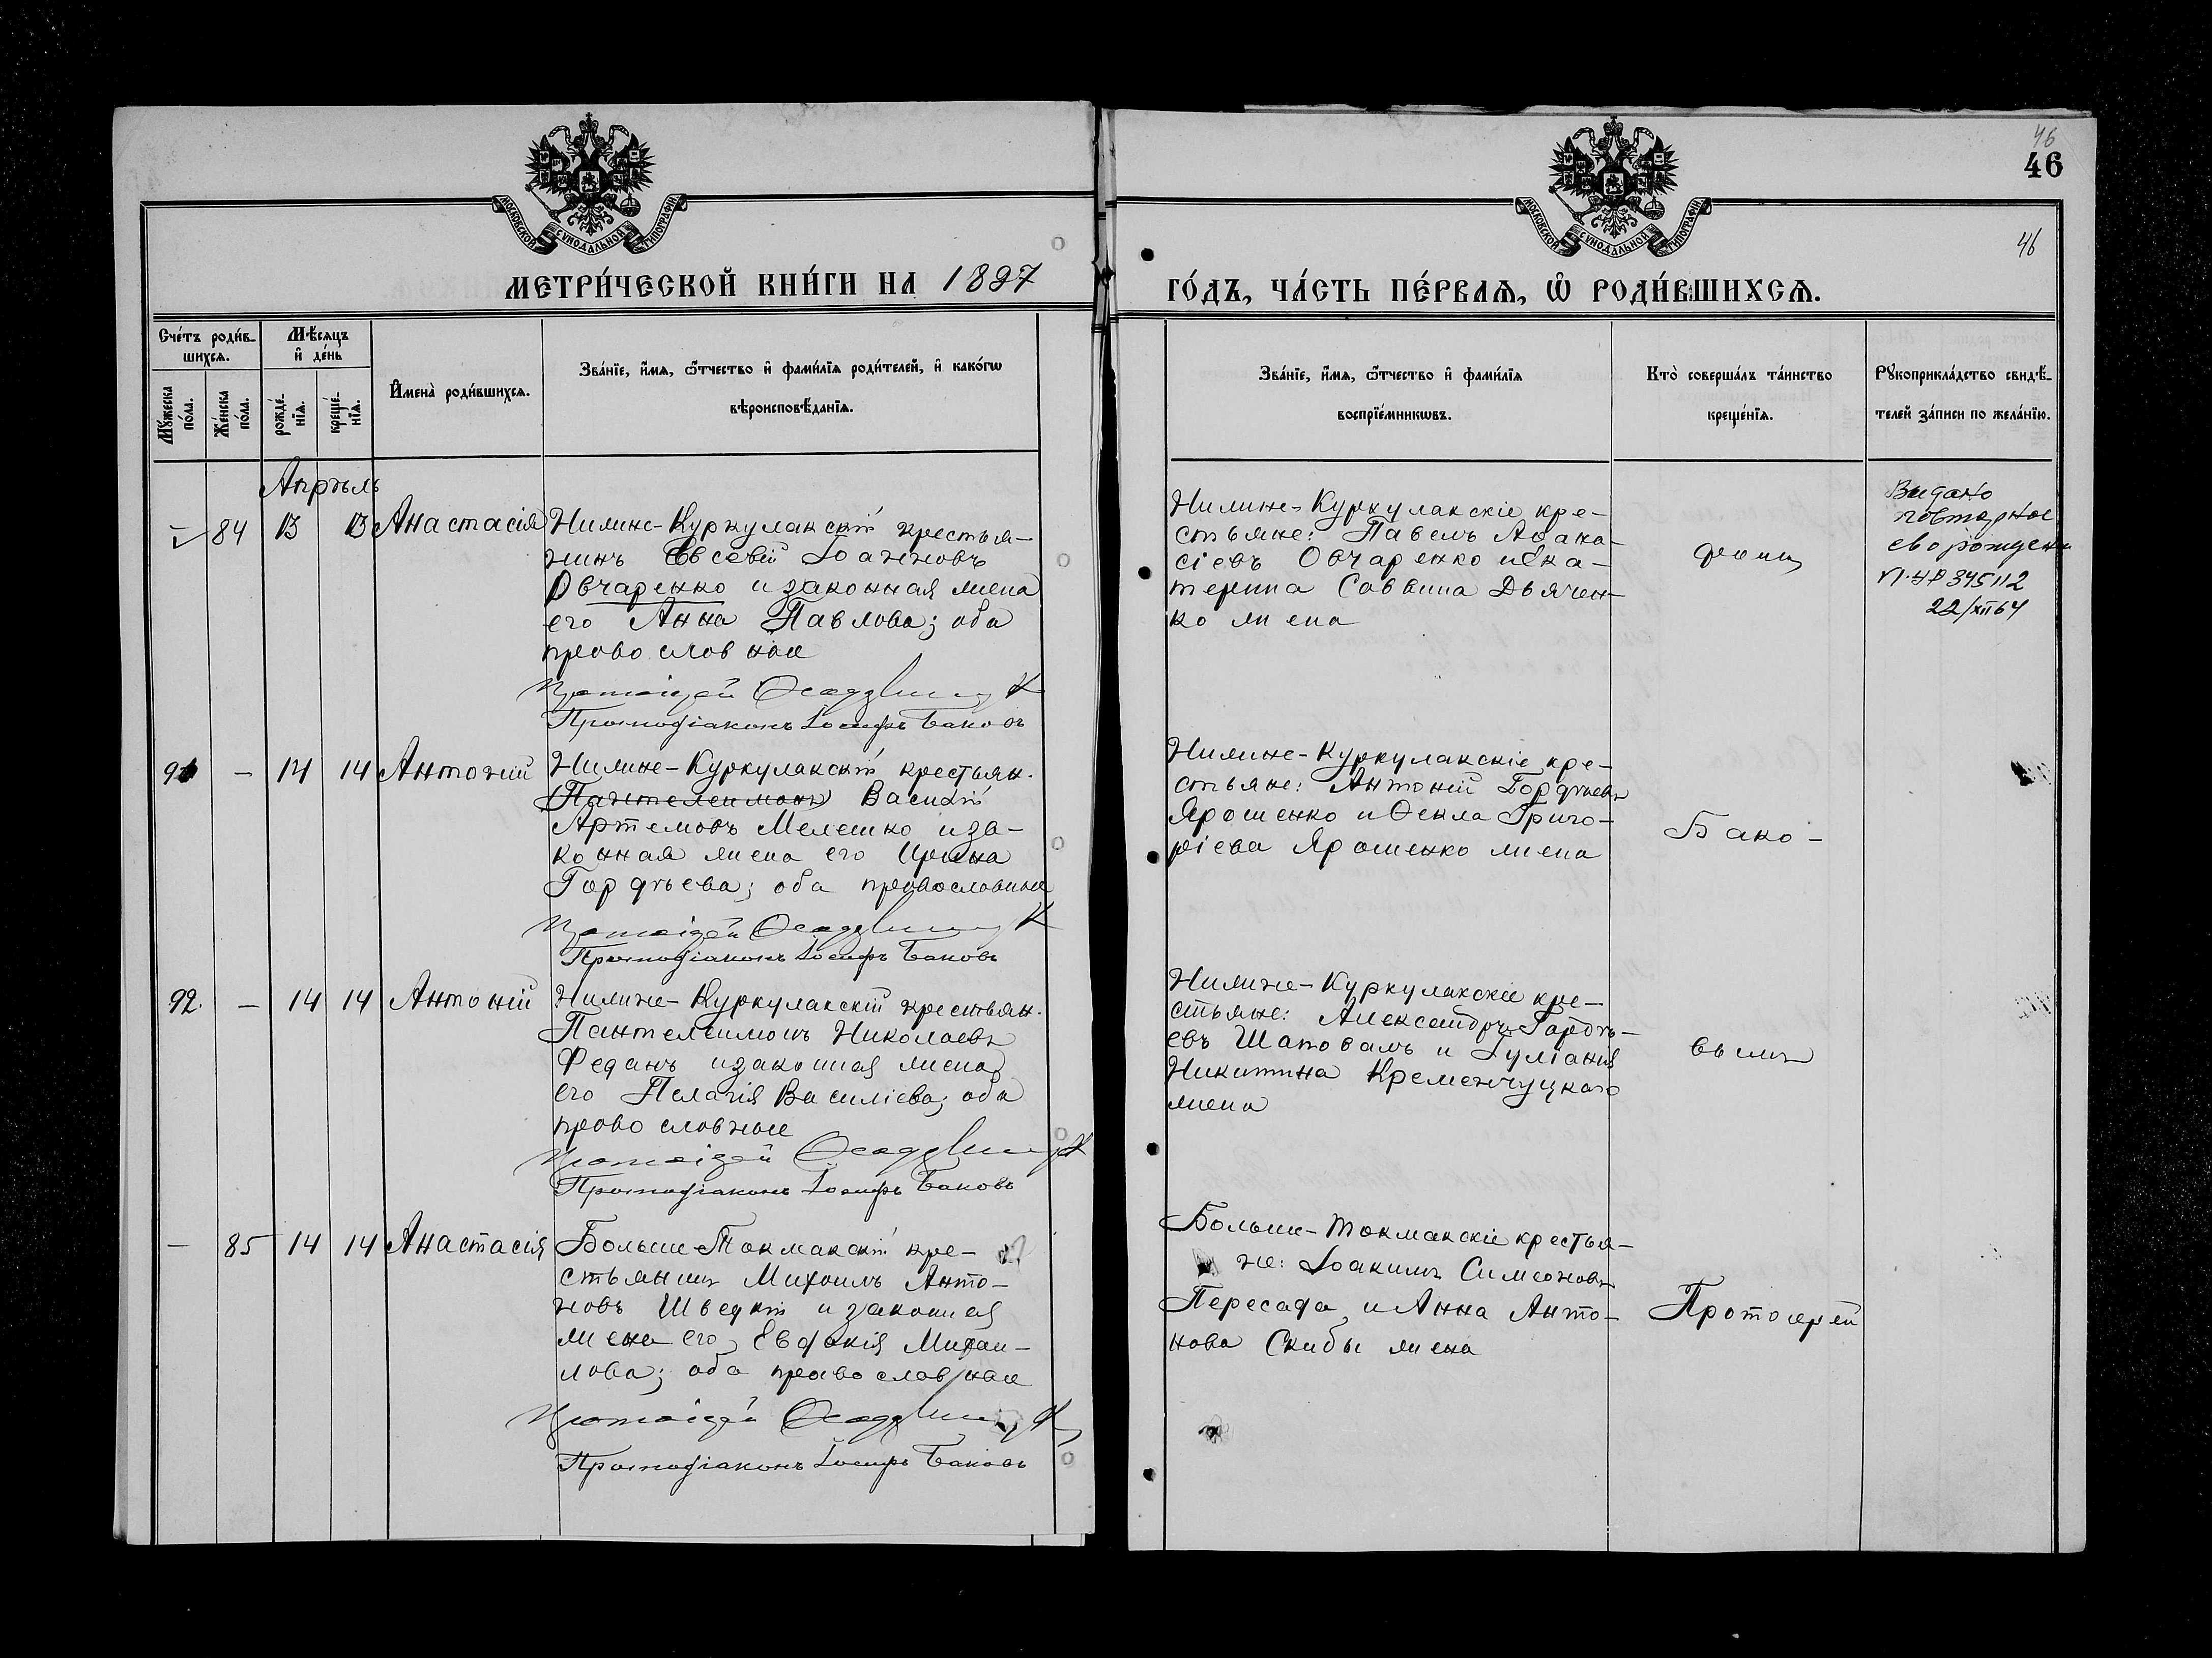 46
46
МОСКОВСКОЙ СУНОДАЛЬНОЙ ТИПОГРАФІИ
МОСКОВСКОЙ СУНОДАЛЬНОЙ ТИПОГРАФІИ
46
МЕТРИ́ЧЕСКОЙ КНИ́ГИ НА 1897
ГО́ДЪ, ЧА́СТЬ ПЕ́РВАѦ, Ѡ РОДИ́ВШИХСѦ.
Сче́тъ роди́в-
шихсѧ.
Мꙋ́жеска по́ла.
Же́нска по́ла.
Мѣ́сѧцъ
и҆ де́нь
рожде́-
нїѧ.
креще́-
нїѧ.
И҆мена̀ роди́вшихсѧ.
Зва́нїе, и҆́мѧ, ѻ҆́тчество и҆ фами́лїѧ роди́телей, и҆ како́гѡ
вѣроисповѣ́данїѧ.
Зва́нїе, и҆́мѧ, ѻ҆́тчество и҆ фами́лїѧ
воспрїе́мникѡвъ.
Кто̀ соверша́лъ та́инство
креще́нїѧ.
Рꙋкоприкла́дство свидѣ́-
телей за́писи по жела́нїю.
Апрѣль
- 84 13 13 Анастасія
Нижне-Куркулакскій крестья-
нинъ Евсевій Іоанновъ
Овчаренко и законная жена
его Анна Павлова; оба
православные
Протоіерей
Протодіаконъ Іосифъ Баковъ
Нижне-Куркулакскіе кре-
стьяне: Павелъ Аѳана-
сіевъ Овчаренко и Ека-
терина Саввина Дьячен-
ко жена
Видано
повторное
св о рожден
345112
22/XII 64
91 - 14 14 Антоній
Нижне-Куркулакскій крестьян.
(Пантелеимонъ) Василій
Артемовъ Мелешко и за-
конная жена его Ирина
Гордѣева; оба православные
Протоіерей
Протодіаконъ Іосифъ Баковъ
Нижне-Куркулакскіе кре-
стьяне: Антоній Гордѣевъ
Ярошенко и Ѳекла Григо-
ріева Ярошенко жена
Бако-
92. - 14 14 Антоній
Нижне-Куркулакскій крестьян.
Пантелеимонъ Николаевъ
Феданъ и законная жена
его Пелагія Василіева; оба
православные
Протоіерей
Протодіаконъ Іосифъ Баковъ
Нижне-Куркулакскіе кре-
стьяне: Александръ Гордѣ-
евъ Шаповалъ и Іуліанія
Никитина Кременчуцкаго
жена
вымъ
- 85 14 14 Анастасія
Больше-Токмакскій кре-
стьянинъ Михаилъ Анто-
новъ Шведкій и законная
жена его Евдокія Михаи-
лова; оба православные
Протоіерей
Протодіаконъ Іосифъ Баковъ
Больше-Токмакскіе крестья-
не: Іоакимъ Симеоновъ
Пересада и Анна Анто-
нова Скибы жена
Протоіерей